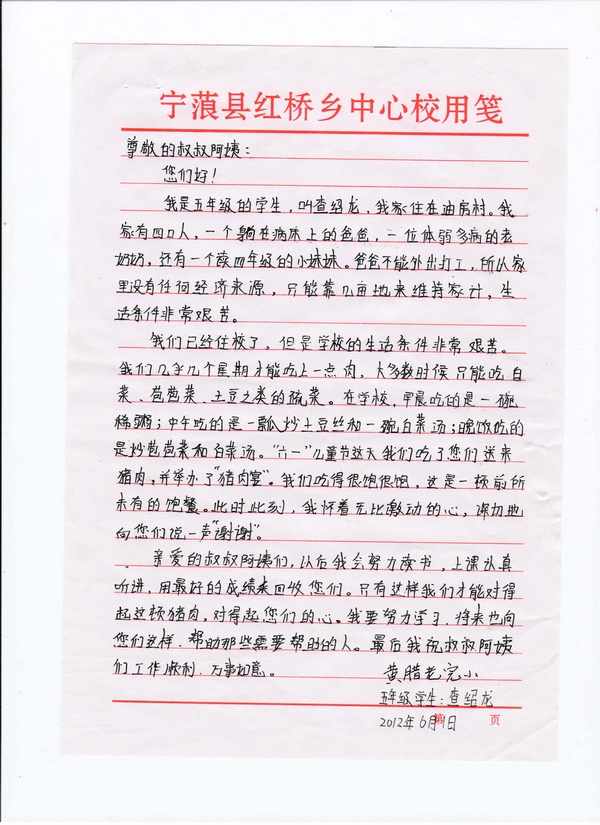 宁蒗县红桥乡中心校用笺
尊敬的叔叔阿姨：
您们好！
我是五年级的学生，叫查绍龙，我家住在油房村。我
家有四口人，一个躺在病床上的爸爸，一位体弱多病的老
奶奶，还有一个读四年级的小妹妹。爸爸不能外出打工，所以家
里没有任何经济来源，只能靠几亩地来维持家计，生
活条件非常艰苦。
我们已经住校了，但是学校的生活条件非常艰苦。
我们几乎几个星期才能吃上一点肉，大多数时候只能吃白
菜、苞苞菜、土豆之类的蔬菜。在学校，早晨吃的是一碗
稀粥；中午吃的是一瓢炒土豆丝和一碗白菜汤；晚饭吃的
是炒苞苞菜和白菜汤。“六一”儿童节这天我们吃了您们送来
猪肉，并举办了“猪肉宴”。我们吃得很饱很饱，这是一顿前所
未有的饱餐。此时此刻，我怀着无比激动的心，深切地
向您们说一声“谢谢”。
亲爱的叔叔阿姨们，以后我会努力读书，上课认真
听讲，用最好的成绩来回收您们。只有这样我们才能对得
起这顿猪肉，对得起您们的心。我要努力学习，将来也向
您们这样，帮助那些需要帮助的人。最后我祝叔叔阿姨
们工作顺利，万事如意。
黄腊老完小
五年级学生：查绍龙
2012年6月1日
第 页